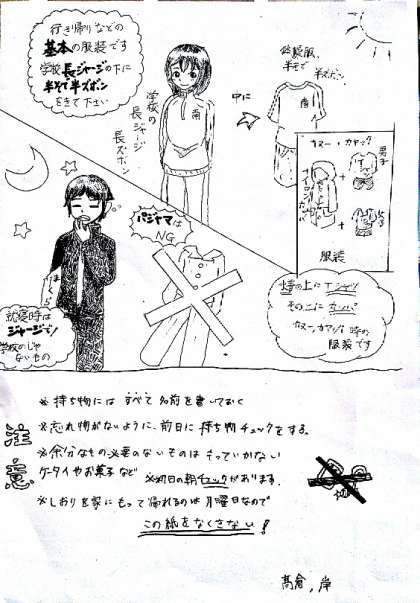 行き帰りなどの
基本の服装です
学校 長ジャージの下に
半そで半ズボン
をきて下さい
学校の
長ジャージ
長ズボン
中に
体操服
半そで
半ズボン
カヌー・カヤック
男子
服装
パジャマは
NG
就寝時は
ジャージで!
学校のじゃ
ないもの
の上にTシャツ
その上に カッパ
カヌー、カヤック 時の
服装です
注意
※持ち物には すべて 名前を書いておく
※忘れ物がないように、前日に持ち物チェックをする。
※余分なもの必要のないものはもっていかない
ケータイやお菓子など ※初日の朝チェックがあります。
※しおりを家にもって帰れるのは月曜日なので
この紙をなくさない!
髙倉,岸